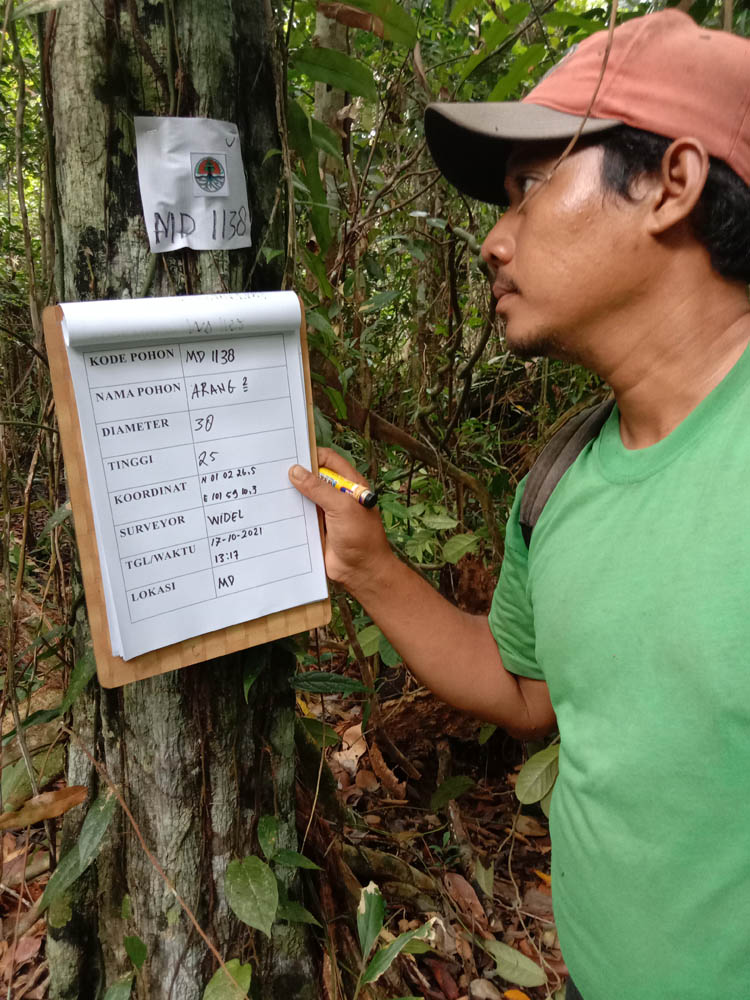 MD 1138
KODE POHON MD 1138
NAMA POHON ARANG 2
DIAMETER 30
TINGGI 25
KOORDINAT N 01 02 26.5
E 101 59 10.3
SURVEYOR WIDEL
TGL/WAKTU 17-10-2021
13:17
LOKASI MD